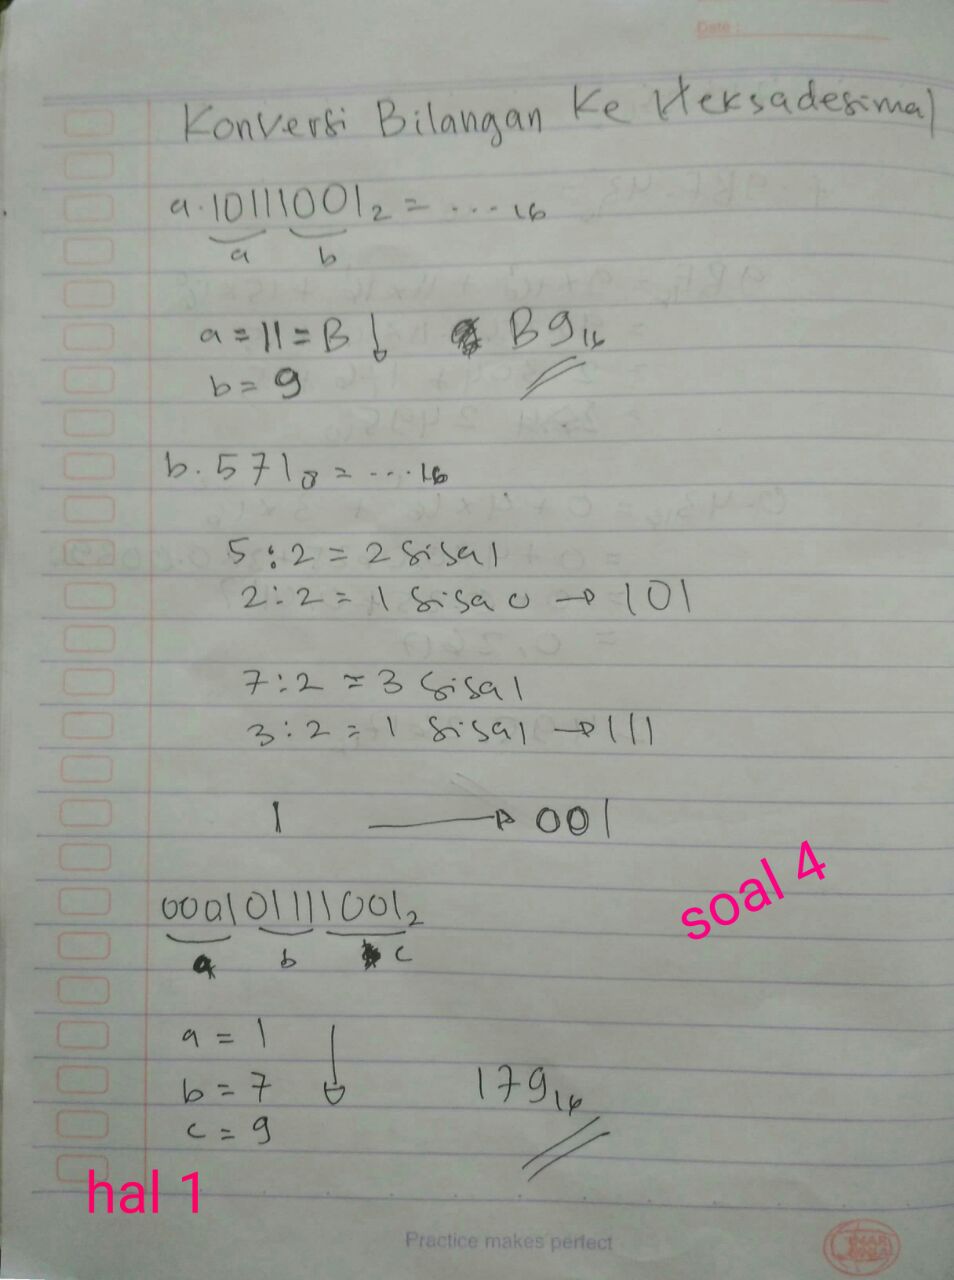 Date :
Konversi Bilangan Ke Heksadesimal
a. 10111001₂ = ... 16
a b
a = 11 = B ↓ B9₁₆
b = 9
b. 571₈ = ... 16
5 : 2 = 2 sisa 1
2 : 2 = 1 sisa 0 → 101
7 : 2 = 3 sisa 1
3 : 2 = 1 sisa 1 → 111
1 → 001
soal 4
000101111001₂
a b c
a = 1 ↓
b = 7 179₁₆
c = 9
hal 1
Practice makes perfect